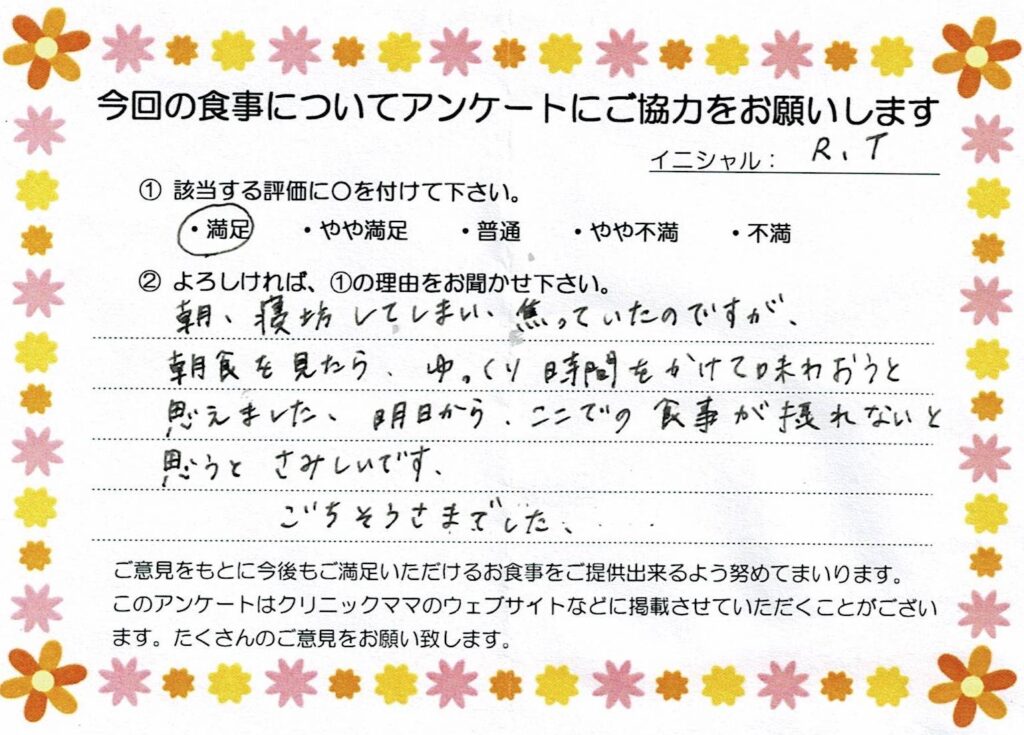 今回の食事についてアンケートにご協力をお願いします
イニシャル： R、T
① 該当する評価に○を付けて下さい。
・満足 ・やや満足 ・普通 ・やや不満 ・不満
② よろしければ、①の理由をお聞かせ下さい。
朝、寝坊してしまい、焦っていたのですが、
朝食を見たら、ゆっくり時間をかけて味わおうと
思えました、明日から、ここでの食事が摂れないと
思うとさみしいです、
ごちそうさまでした、.....
ご意見をもとに今後もご満足いただけるお食事をご提供出来るよう努めてまいります。
このアンケートはクリニックママのウェブサイトなどに掲載させていただくことがござい
ます。たくさんのご意見をお願い致します。